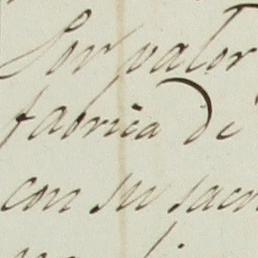 Por valor
fabrica de
con su sacri